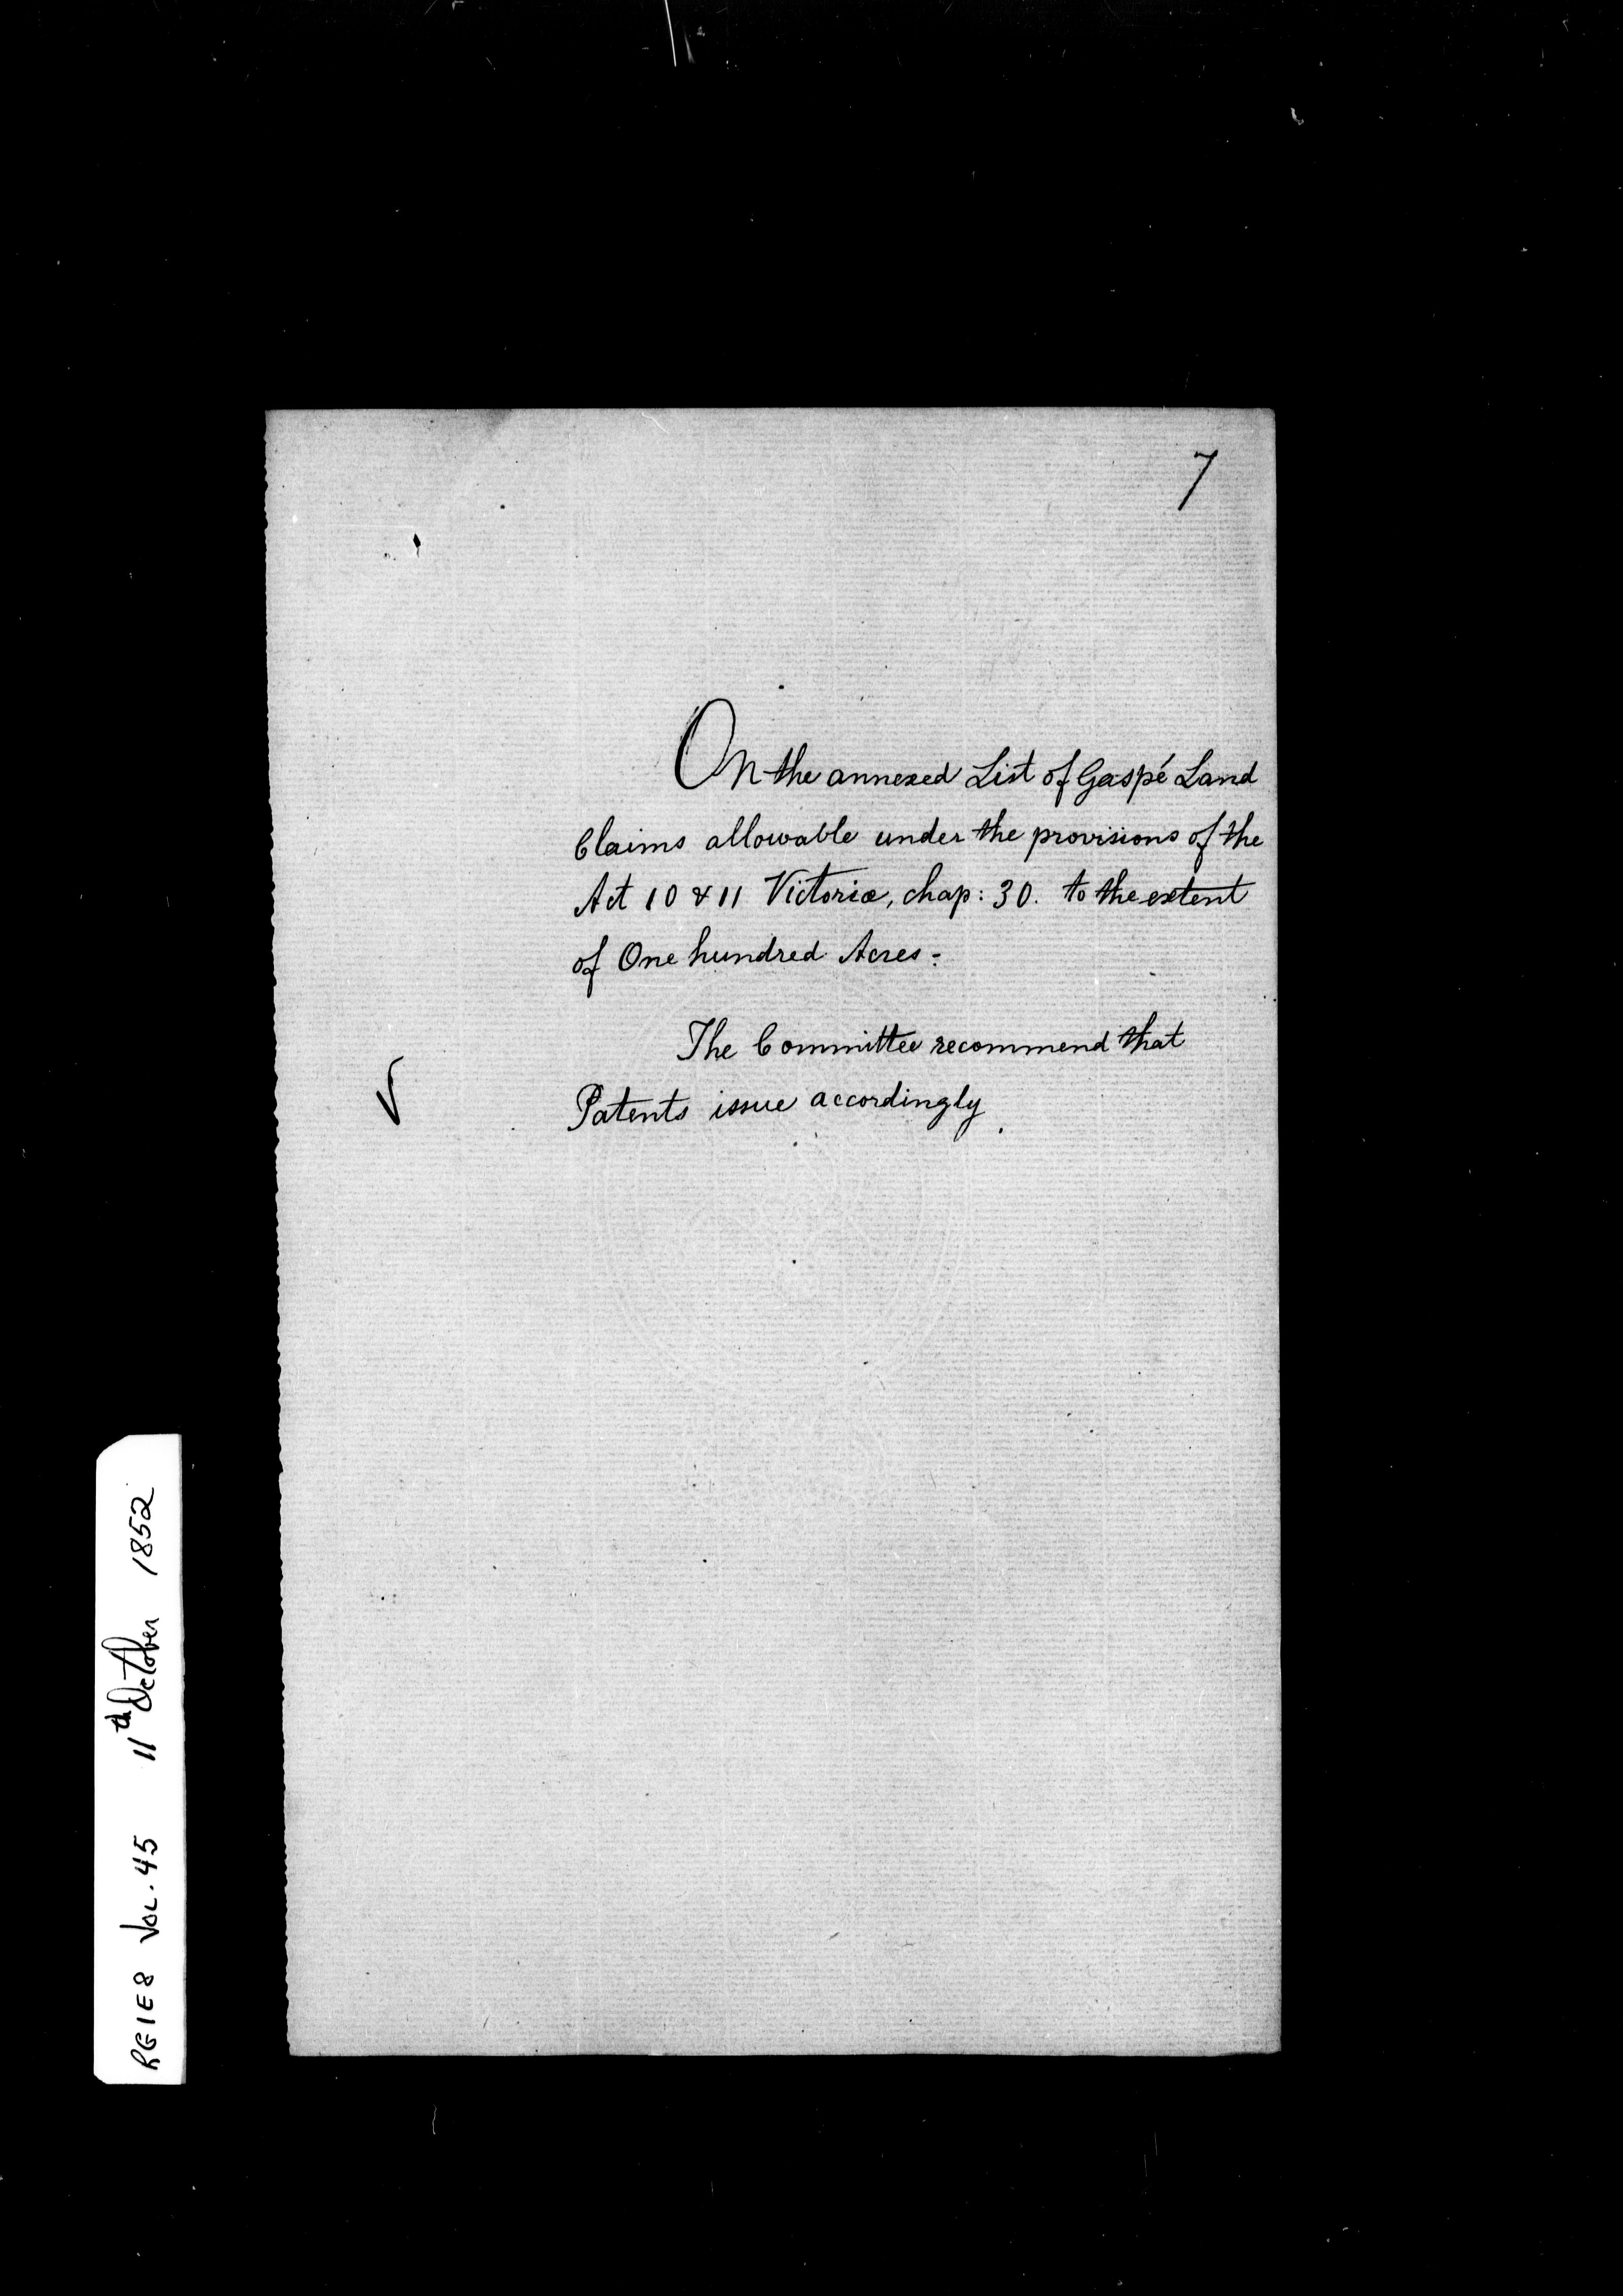 7
On the annexed List of Gaspé Land
Claims allowable under the provisions of the
Act 10 & 11 Victoriæ, chap: 30. to the extent
of One hundred Acres:
The Committee recommend that
Patents issue accordingly.
RG1E8 VOL. 45 11th October 1852